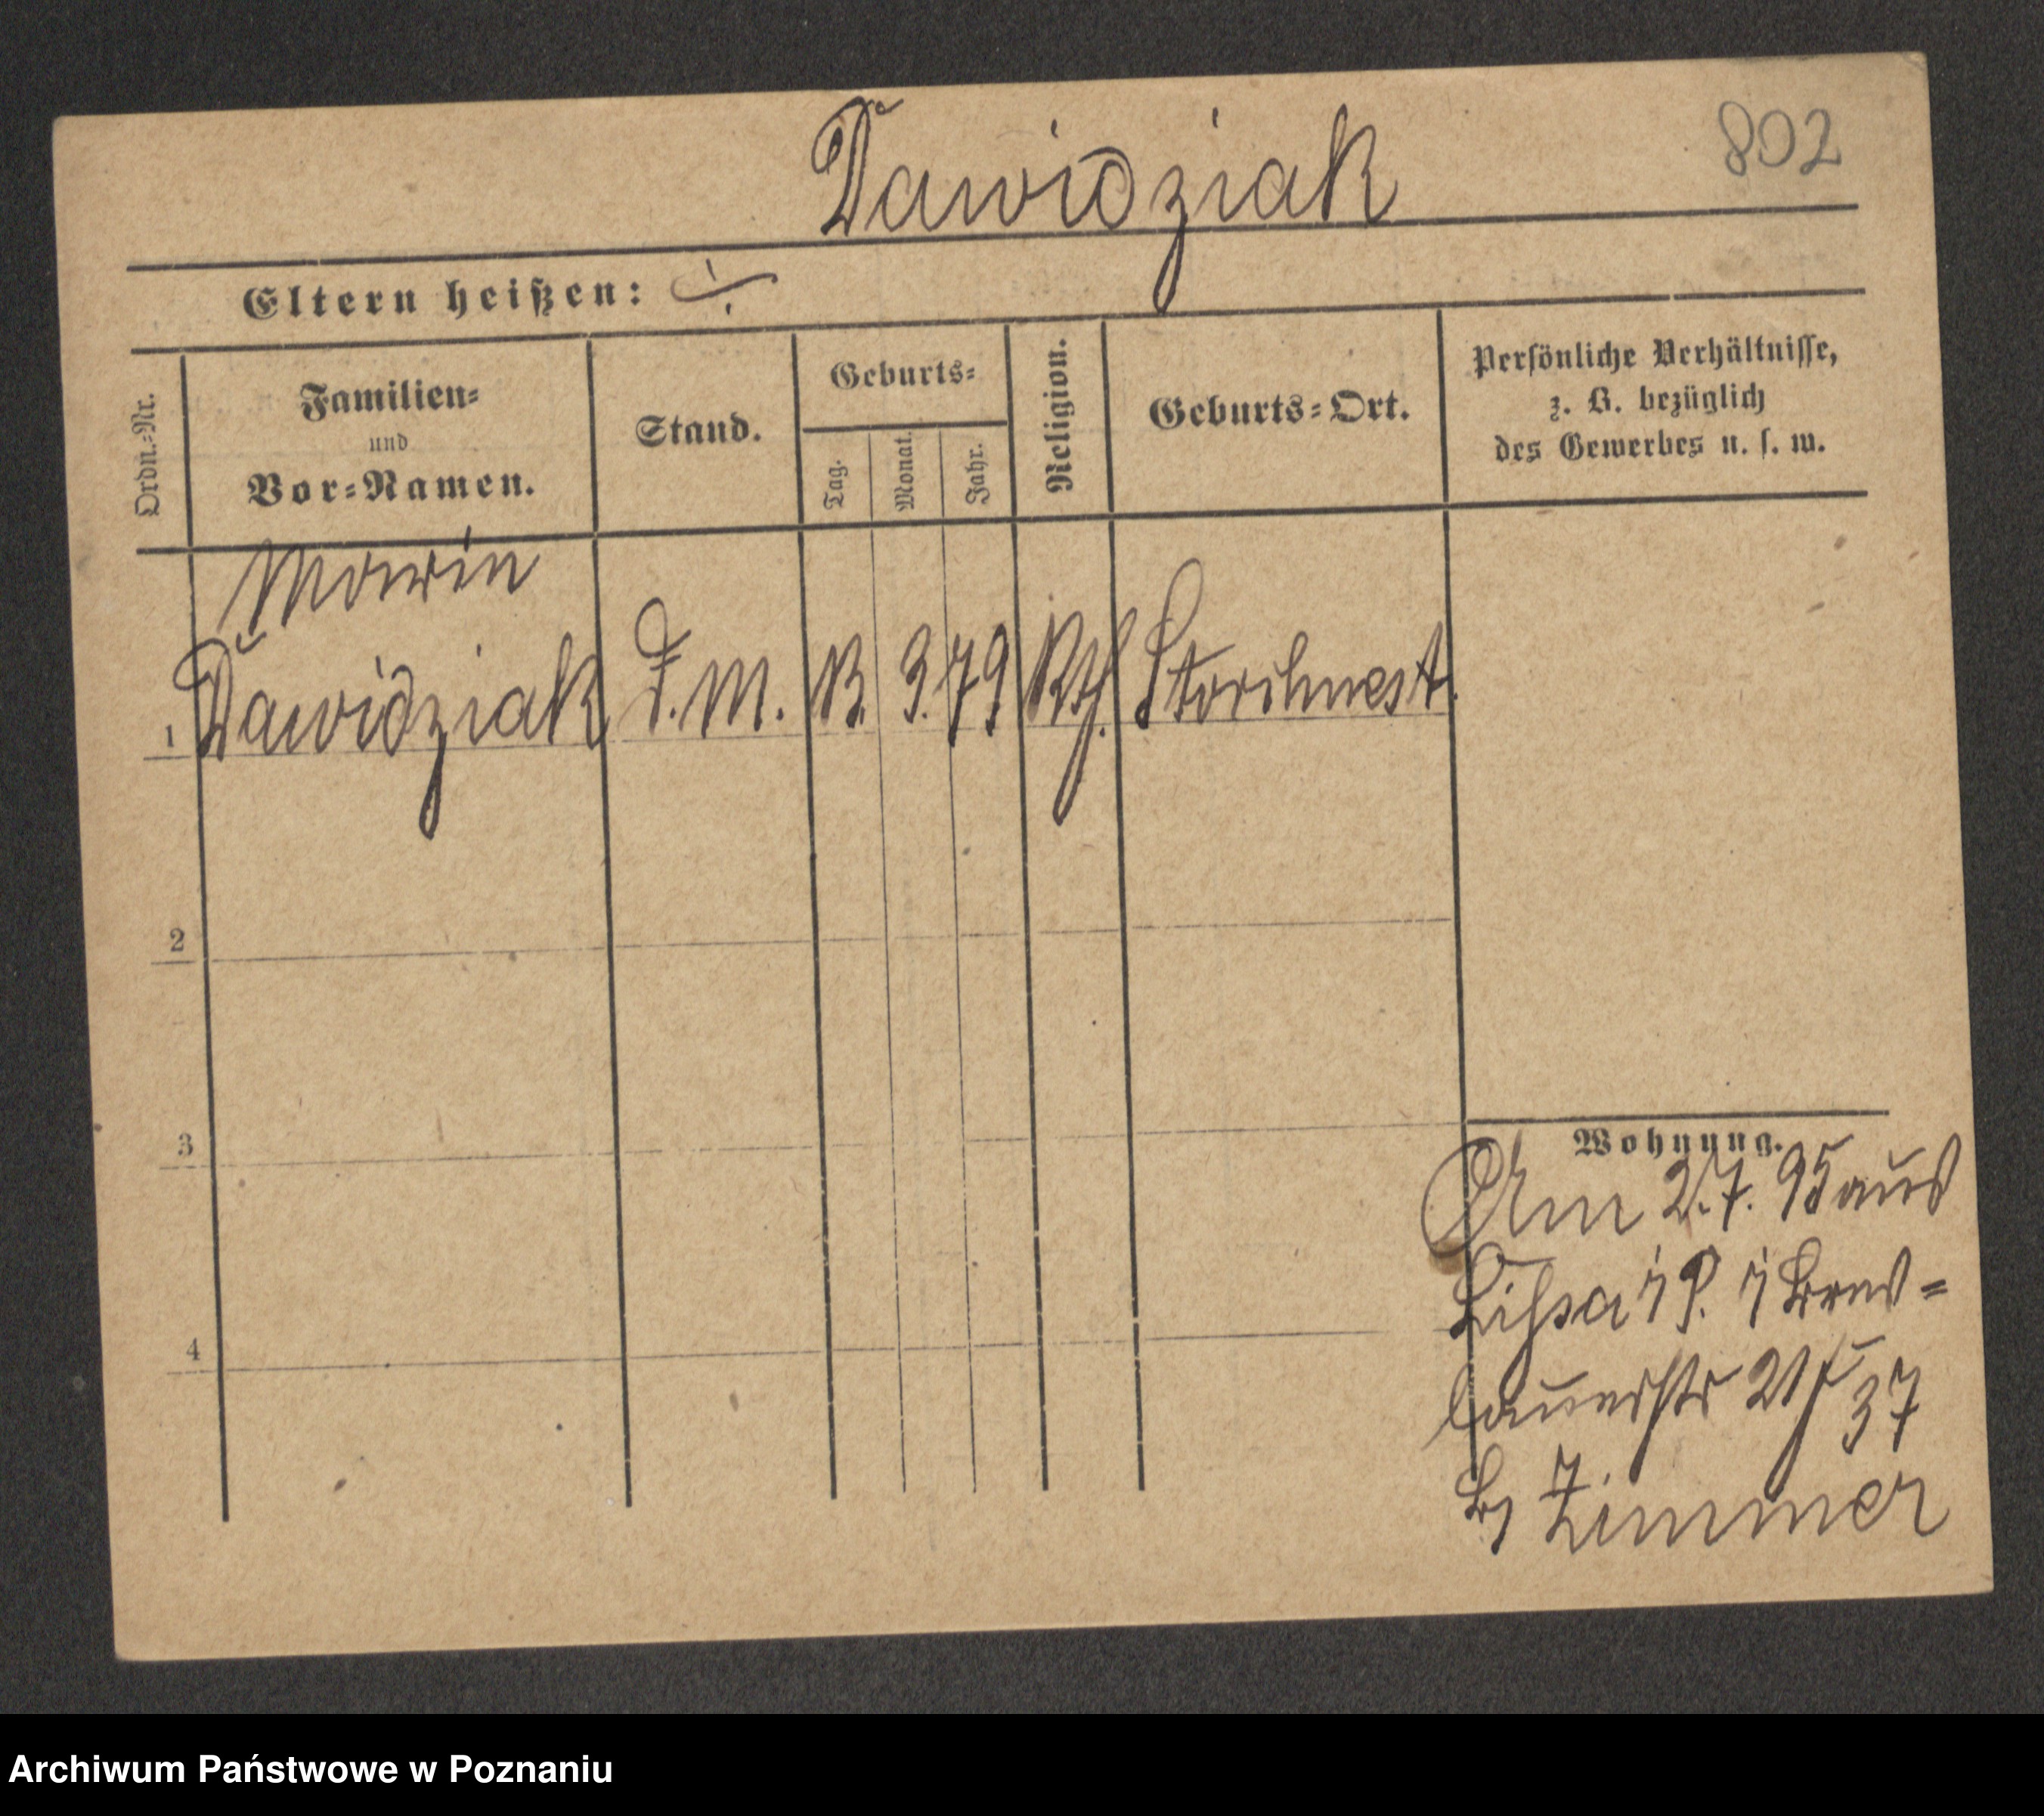 802
Dawidziak
Eltern heißen: ./.
Ordn.-Nr.
Familien-
und
Vor-Namen.
Stand.
Geburts-
Tag.
Monat.
Jahr.
Religion.
Geburts-Ort.
Persönliche Verhältnisse,
z. B. bezüglich
des Gewerbes u. s. w.
1 Dawidziak D. M. 13. 9. 79 Kth. Storchnest.
2
3
4
Wohnung.
Am 2.7. 95 aus
Lissa i P. i Bres-
lauerstr 21 37
b/ Zimmer
Archiwum Państwowe w Poznaniu